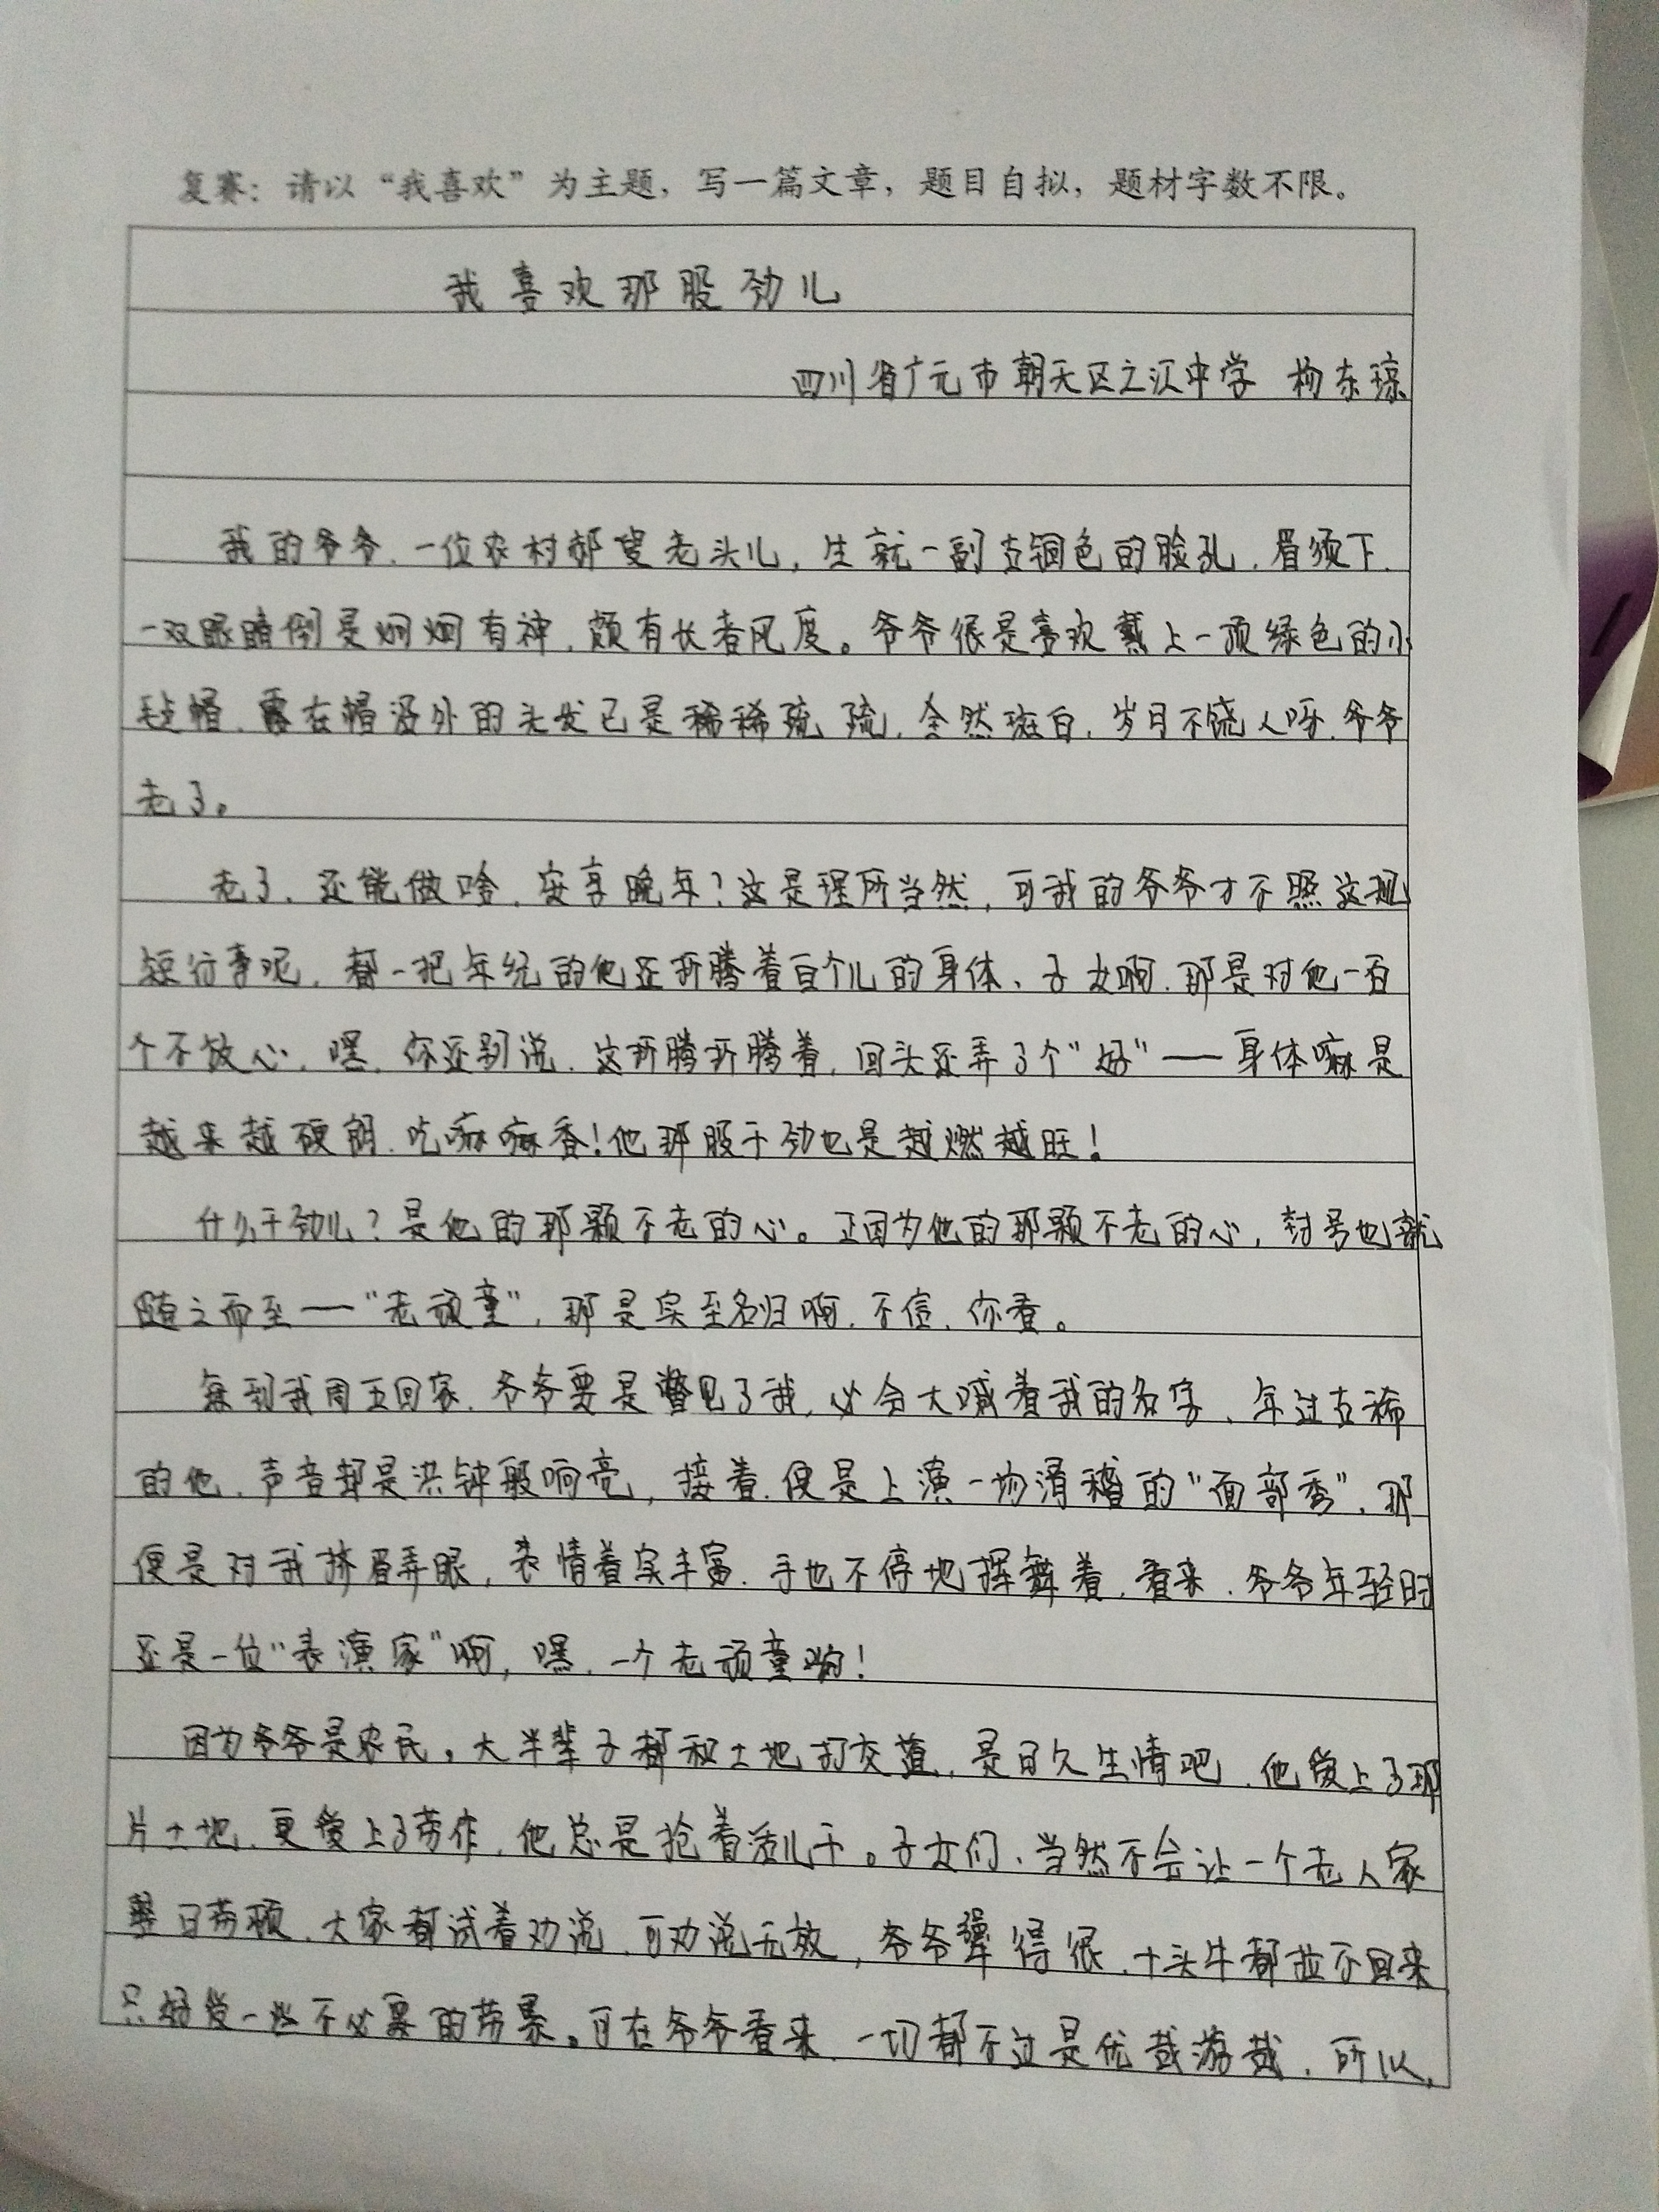 复赛：请以“我喜欢”为主题，写一篇文章，题目自拟，题材字数不限。
我喜欢那股劲儿
四川省广元市朝天区之江中学 杨东琼
我的爷爷，一位农村郝叟老头儿，生就一副古铜色的脸孔，眉须下，
一双眼睛倒是炯炯有神，颇有长者风度。爷爷很是喜欢戴上一顶绿色的小
毡帽，露在帽沿外的头发已是稀稀疏疏，全然斑白，岁月不饶人呀，爷爷
老了。
老了，还能做啥，安享晚年？这是理所当然，可我的爷爷才不照这规
矩行事呢，都一把年纪的他还折腾着百个儿的身体，子女啊，那是对他一百
个不放心，嘿，你还别说，这折腾折腾着，回头还弄了个“好”——身体嘛是
越来越硬朗，吃嘛嘛香！他那股干劲也是越燃越旺！
什么干劲儿？是他的那颗不老的心。正因为他的那颗不老的心，封号也就
随之而至——“老顽童”，那是实至名归啊，不信，你看。
每到我周五回家，爷爷要是瞥见了我，必会大喊着我的名字，年过古稀
的他，声音却是洪钟般响亮，接着，便是上演一场滑稽的“面部秀”，那
便是对我挤眉弄眼，表情着实丰富，手也不停地挥舞着，看来，爷爷年轻时
还是一位“表演家”啊，嘿，一个老顽童哟！
因为爷爷是农民，大半辈子都和土地打交道，是日久生情吧，他爱上了那
片土地，更爱上了劳作，他总是抢着活儿干。子女们，当然不会让一个老人家
整日劳顿，大家都试着劝说，可劝说无效，爷爷犟得很，十头牛都拉不回来
只好受一些不必要的劳累。可在爷爷看来，一切都不过是优哉游哉，所以，